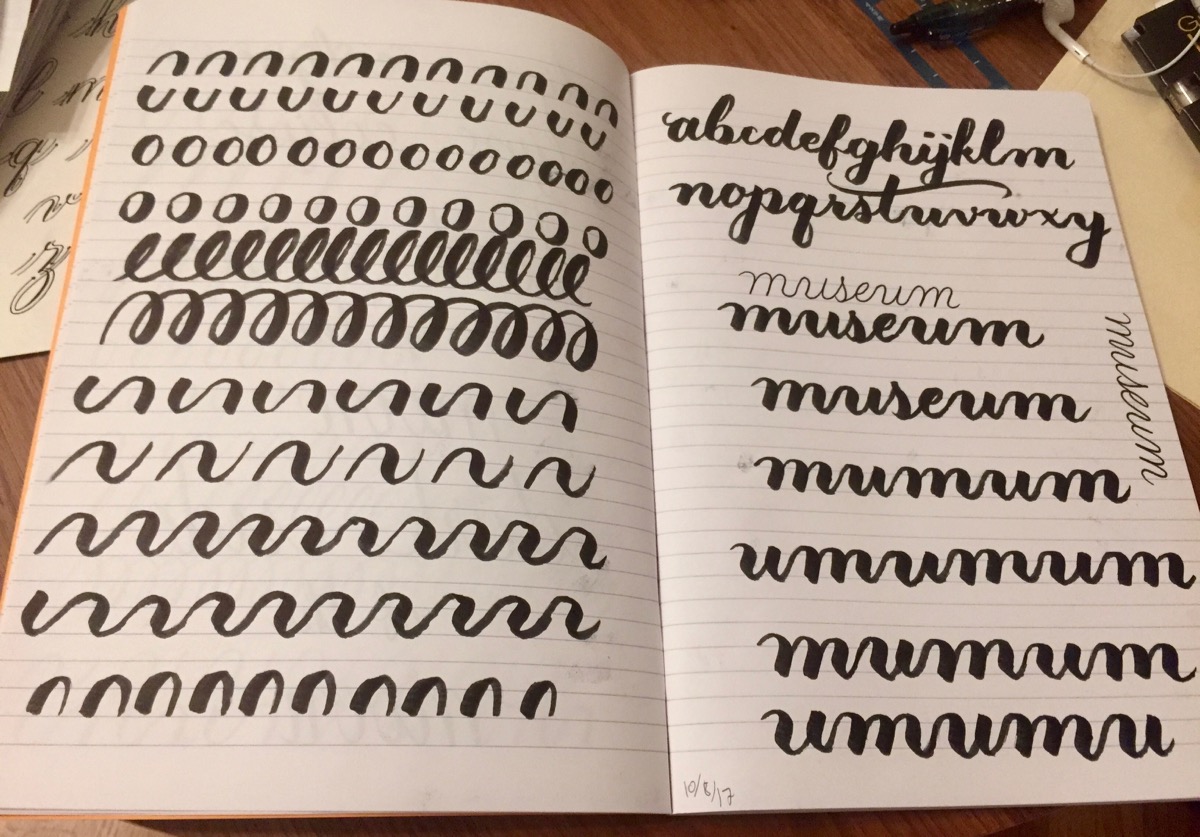 abcdefghijklm
nopqrstuvwxy
museum
museum
museum
museum
mumum
umumum
mumum
umumu
10/8/17